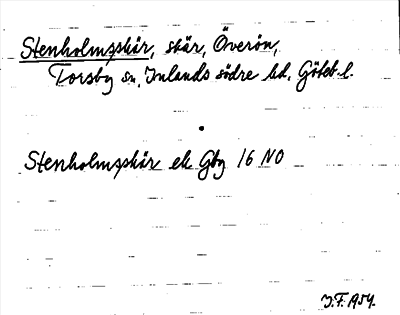 Stenholmsskär, skär, Överön,
Torsby sn, Inlands södre hd, Göteb. l.
Stenholmsskär ek Gbg 16 NO
J.F. 1954.